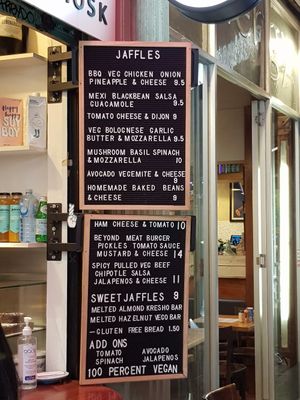 OSK
JAFFLES
BBQ VEG CHICKEN ONION
PINEAPPLE & CHEESE 9.5
MEXI BLACKBEAN SALSA
GUACAMOLE 9.5
TOMATO CHEESE & DIJON 9
VEG BOLOGNESE GARLIC
BUTTER & MOZZARELLA 9.5
MUSHROOM BASIL SPINACH
& MOZZARELLA 10
AVOCADO VEGEMITE & CHEESE
9
HOMEMADE BAKED BEANS
& CHEESE 9
HAM CHEESE & TOMATO 10
BEYOND MEAT BURGER
PICKLES TOMATO SAUCE
MUSTARD & CHEESE 14
SPICY PULLED VEG BEEF
CHIPOTLE SALSA
JALAPENOS & CHEESE 11
SWEET JAFFLES 9
MELTED ALMOND KRESHO BAR
MELTED HAZELNUT VEGO BAR
-GLUTEN FREE BREAD 1.50
ADD ONS
TOMATO AVOCADO
SPINACH JALAPENOS
100 PERCENT VEGAN
SOY
BOY